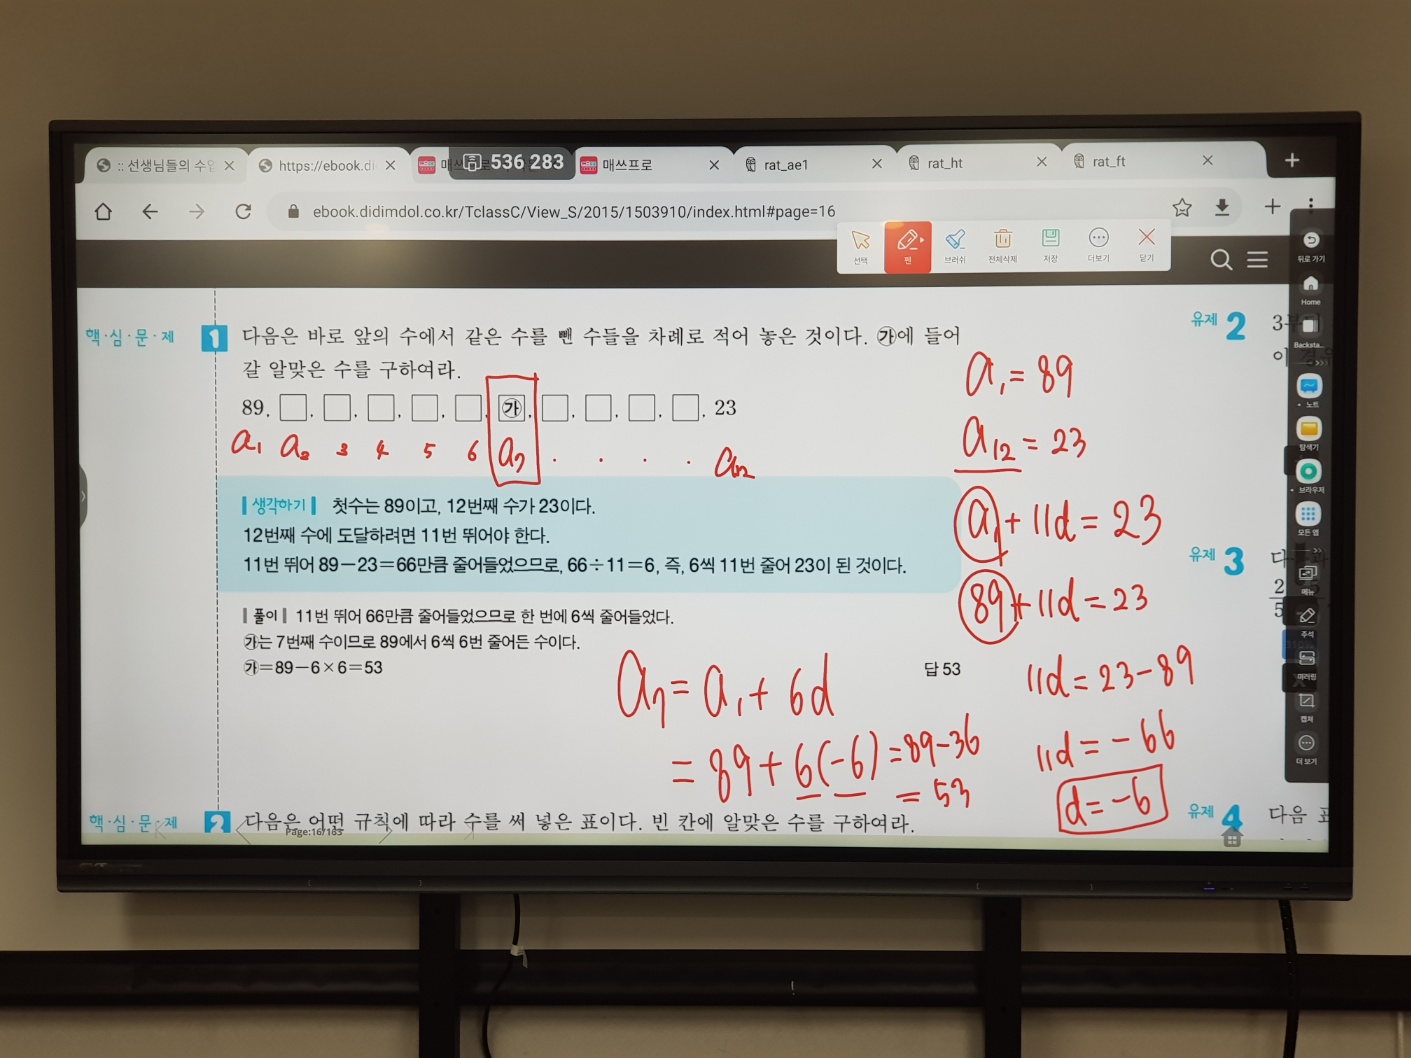 :: 선생님들의 수업
https://ebook.di
536 283
매쓰프로
rat_ae1
rat_ht
rat_ft
ebook.didimdol.co.kr/TclassC/View_S/2015/1503910/index.html#page=16
선택
펜
브러쉬
전체삭제
저장
더보기
닫기
뒤로 가기
Home
노트
탐색기
브라우저
모든 앱
메뉴
주석
미러링
캡처
더 보기
핵·심·문·제
1 다음은 바로 앞의 수에서 같은 수를 뺀 수들을 차례로 적어 놓은 것이다. ㉮에 들어
갈 알맞은 수를 구하여라.
89, □, □, □, □, □, ㉮, □, □, □, □, 23
a₁ a₂ 3 4 5 6 a₇ . . . . a₁₂
생각하기 첫수는 89이고, 12번째 수가 23이다.
12번째 수에 도달하려면 11번 뛰어야 한다.
11번 뛰어 89-23=66만큼 줄어들었으므로, 66÷11=6, 즉, 6씩 11번 줄어 23이 된 것이다.
풀이 11번 뛰어 66만큼 줄어들었으므로 한 번에 6씩 줄어들었다.
㉮는 7번째 수이므로 89에서 6씩 6번 줄어든 수이다.
㉮=89-6×6=53
답 53
a₇ = a₁ + 6d
= 89 + 6(-6) = 89-36
= 53
a₁ = 89
a₁₂ = 23
a₁ + 11d = 23
89 + 11d = 23
11d = 23-89
11d = -66
d = -6
핵·심·문·제
2 다음은 어떤 규칙에 따라 수를 써 넣은 표이다. 빈 칸에 알맞은 수를 구하여라.
Page:16/163
유제 2
유제 3
유제 4 다음 표